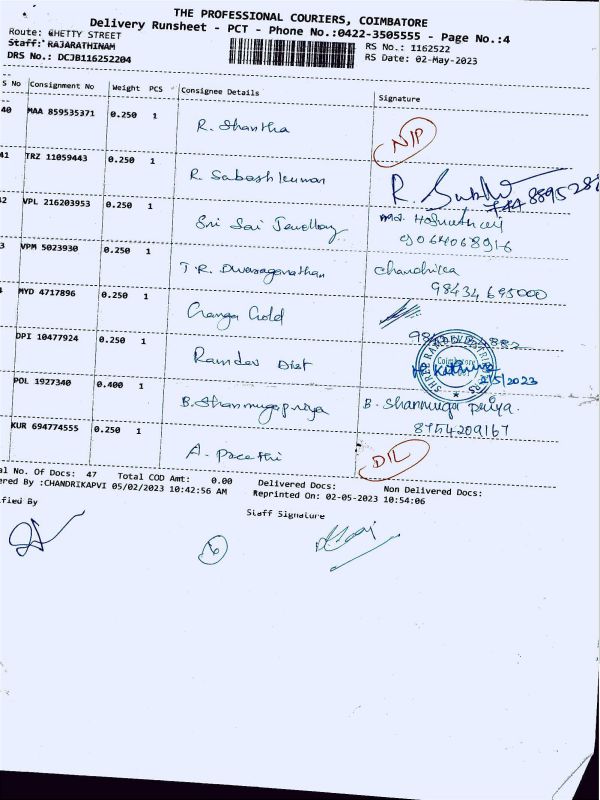 THE PROFESSIONAL COURIERS, COIMBATORE
Delivery Runsheet - PCT - Phone No.:0422-3505555 - Page No.:4
Route: GHETTY STREET
RS No.: 1162522
Staff: RAJARATHINAM
RS Date: 02-May-2023
DRS No.: DCJB116252204
S No Consignment No Weight PCS Consignee Details Signature
40 MAA 859535371 0.250 1 R. Shantha N/P
41 TRZ 11059443 0.250 1 R. Sabashkumar
2 VPL 216203953 0.250 1 Sri Sai Jewellery
9064068916
3 VPM 5023930 0.250 1 T.R. Dwaraganathan Chandrika
98434695000
MYD 4717896 0.250 1 Ganga Gold
DPI 10477924 0.250 1 Ramdev Dist
2/5/2023
POL 1927340 0.400 1 B. Shanmugapriya B. Shanmuga Priya.
8754209167
KUR 694774555 0.250 1 A. Preethi D/L
al No. Of Docs: 47 Total COD Amt: 0.00 Delivered Docs: Non Delivered Docs:
ered By :CHANDRIKAPVI 05/02/2023 10:42:56 AM Reprinted On: 02-05-2023 10:54:06
ified By Staff Signature